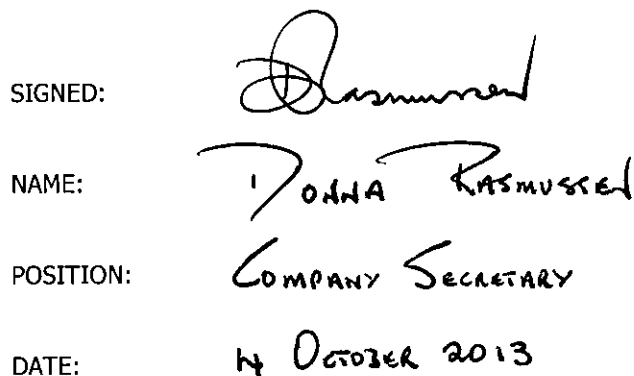 SIGNED: DRasmussen
NAME: DONNA RASMUSSEN
POSITION: COMPANY SECRETARY
DATE: 4 OCTOBER 2013